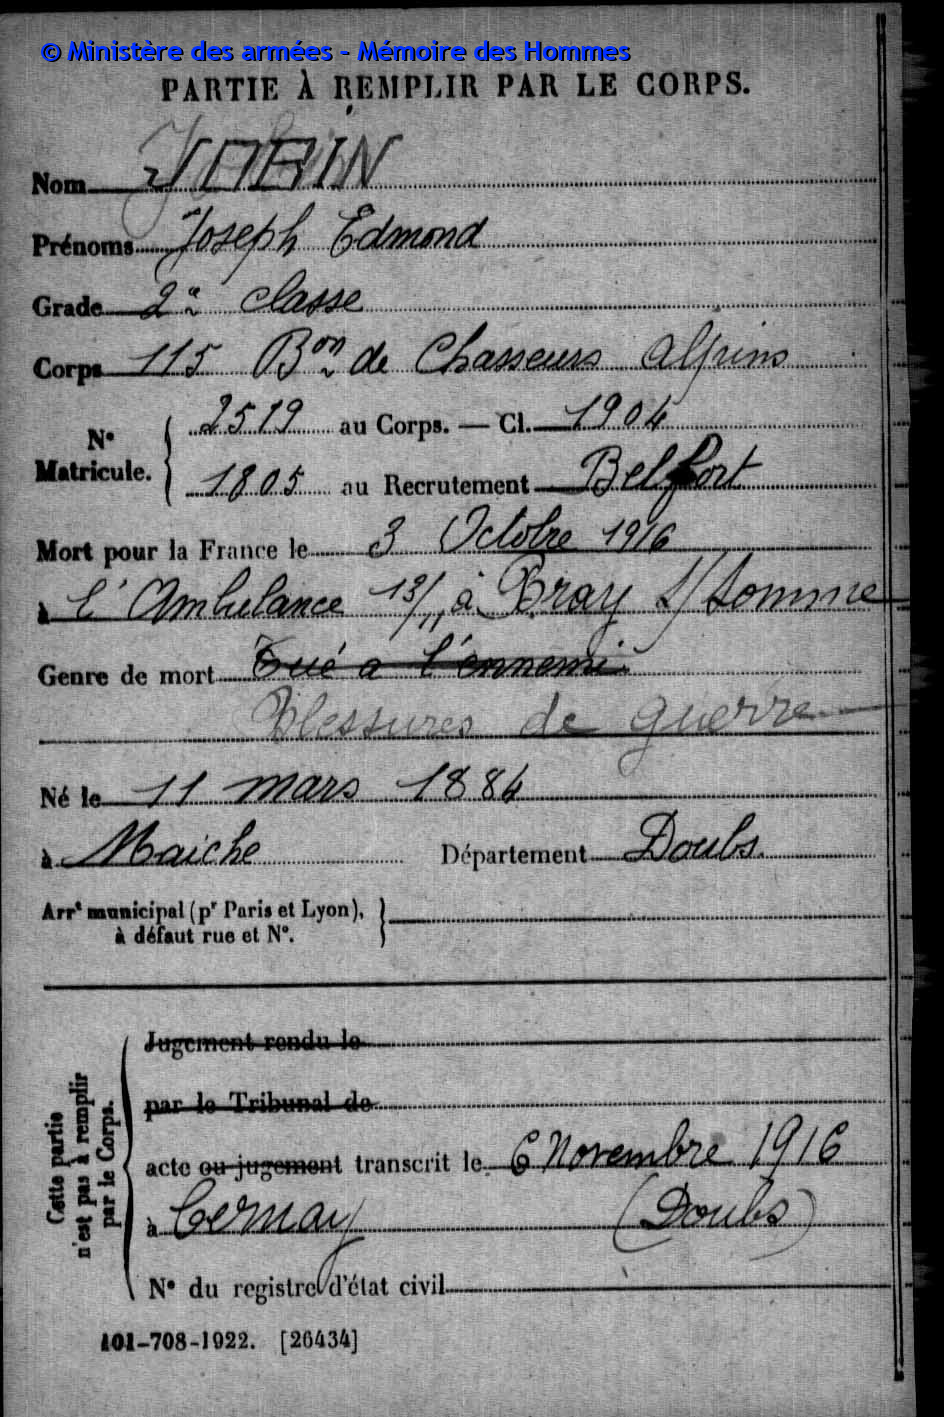 © Ministère des armées - Mémoire des Hommes
PARTIE À REMPLIR PAR LE CORPS.
Nom
Prénoms Joseph Edmond
Grade 2e classe
Corps 115 Bon de Chasseurs Alpins
N° Matricule. { 2519 au Corps. — Cl. 1904
1805 au Recrutement Belfort
Mort pour la France le 3 Octobre 1916
à l'Ambulance 13/11 à Bray s/ Somme
Genre de mort Tué a l'ennemi
Blessures de guerre
Né le 11 mars 1884
à Maiche Département Doubs.
Arrt municipal (pr Paris et Lyon),
à défaut rue et N°.
Cette partie n'est pas à remplir par le Corps.
Jugement rendu le
par le Tribunal de
acte ou jugement transcrit le 6 Novembre 1916
à Cernay (Doubs)
N° du registre d'état civil
101-708-1922. [26434]